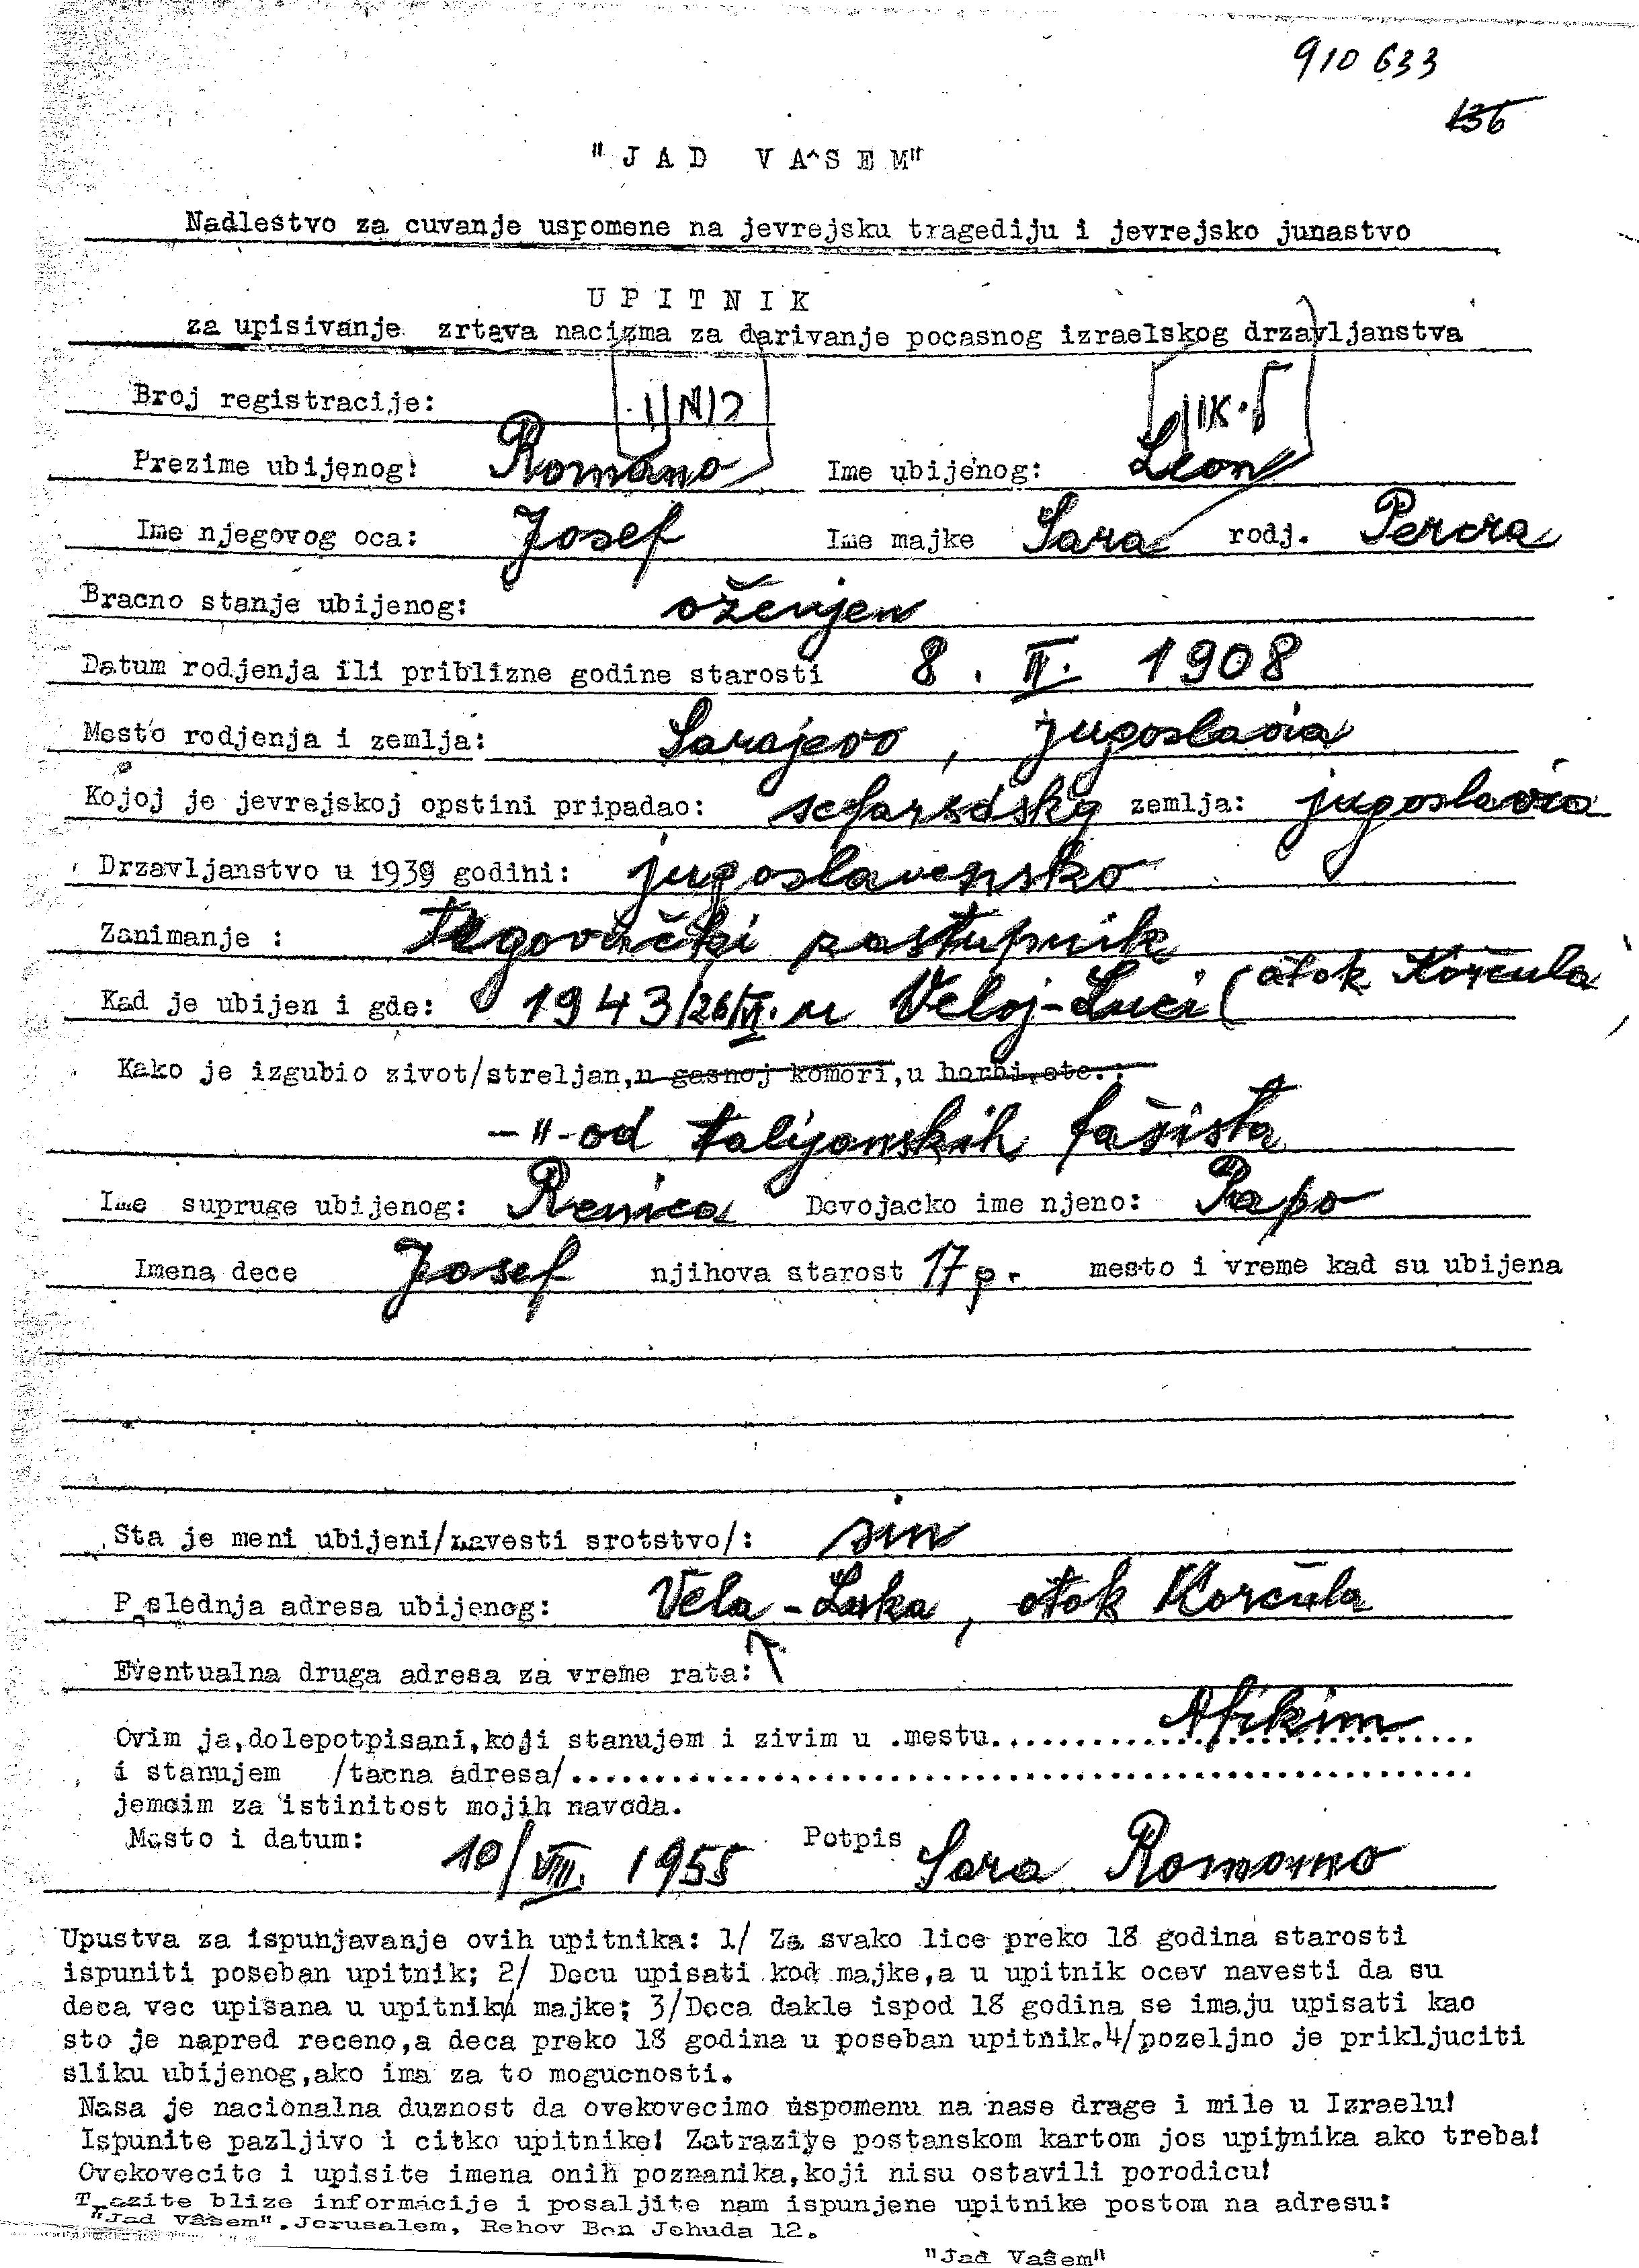 910 633
136
"JAD VA^SEM"
Nadlestvo za cuvanje uspomene na jevrejsku tragediju i jevrejsko junastvo
UPITNIK
za upisivanje zrtava nacizma za darivanje pocasnog izraelskog drzavljanstva
Broj registracije:
Prezime ubijenog: Romano Ime ubijenog: Leon
Ime njegovog oca: Josef Ime majke Sara rodj. Perera
Bracno stanje ubijenog: oženjen
Datum rodjenja ili priblizne godine starosti 8. II. 1908
Mesto rodjenja i zemlja: Sarajevo, jugoslavia
Kojoj je jevrejskoj opstini pripadao: zemlja: jugoslavia
Drzavljanstvo u 1939 godini: jugoslavensko
Zanimanje : trgovački zastupnik
Kad je ubijen i gde: 1943/26/VI. u Veloj-Luci (otok Korčula
Kako je izgubio zivot/streljan,u gasnoj komori,u borbi,etc.:
-"-od talijanskih fašista
Ime supruge ubijenog: Renica Devojacko ime njeno: Papo
Imena dece Josef njihova starost 17 g. mesto i vreme kad su ubijena
Sta je meni ubijeni/navesti srotstvo/: sin
Poslednja adresa ubijenog: Vela-Luka, otok Korčula
Eventualna druga adresa za vreme rata:
Ovim ja,dolepotpisani,koji stanujem i zivim u .mestu... Afikim
i stanujem /tacna adresa/...
jemcim za istinitost mojih navoda.
Mesto i datum: 10/VIII. 1955 Potpis Sara Romano
Upustva za ispunjavanje ovih upitnika: 1/ Za svako lice preko 18 godina starosti
ispuniti poseban upitnik; 2/ Decu upisati kod majke,a u upitnik ocev navesti da su
deca vec upisana u upitniku majke; 3/Deca dakle ispod 18 godina se imaju upisati kao
sto je napred receno,a deca preko 18 godina u poseban upitnik.4/pozeljno je prikljuciti
sliku ubijenog,ako ima za to mogucnosti.
Nasa je nacionalna duznost da ovekovecimo uspomenu na nase drage i mile u Izraelu!
Ispunite pazljivo i citko upitnike! Zatrazite postanskom kartom jos upitnika ako treba!
Ovekovecite i upisite imena onih poznanika,koji nisu ostavili porodicu!
Trazite blize informacije i posaljite nam ispunjene upitnike postom na adresu:
"Jad Vašem".Jerusalem, Rehov Ben Jehuda 12.
"Jad Vašem"